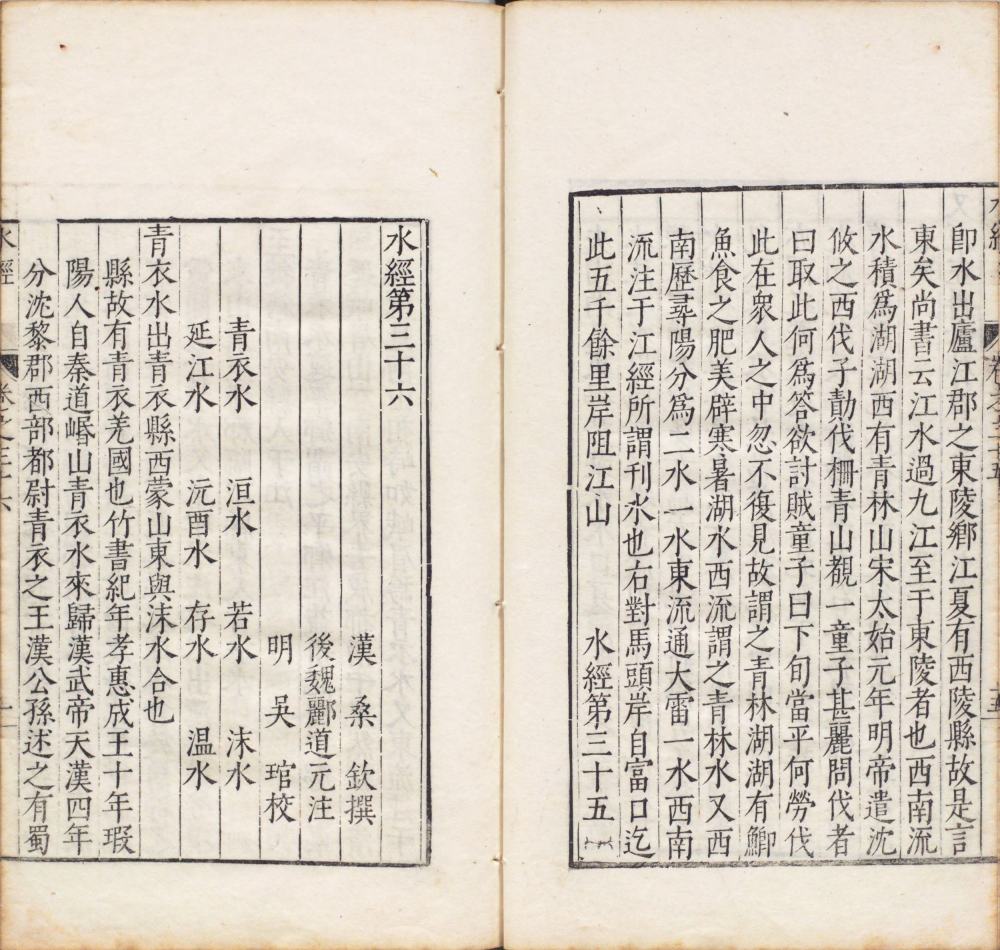 卽水出廬江郡之東陵鄉江夏有西陵縣故是言
東矣尚書云江水過九江至于東陵者也西南流
水積爲湖湖西有青林山宋太始元年明帝遣沈
攸之西伐子勛伐柵青山覩一童子甚麗問伐者
曰取此何爲荅欲討賊童子曰下旬當平何勞伐
此在衆人之中忽不復見故謂之青林湖湖有鯽
魚食之肥美辟寒暑湖水西流謂之青林水又西
南歷尋陽分爲二水一水東流通大雷一水西南
流注于江經所謂刊水也右對馬頭岸自富口迄
此五千餘里岸阻江山
水經第三十五
水經第三十六
漢桑欽撰
後魏酈道元注
明吳琯校
青衣水 洹水 若水 沫水
延江水 沅酉水 存水 温水
青衣水出青衣縣西蒙山東與沫水合也
縣故有青衣羌國也竹書紀年孝惠成王十年瑕
陽人自秦道㟭山青衣水來歸漢武帝天漢四年
分沈黎郡西部都尉青衣之王漢公孫述之有蜀
水經
卷之三十六